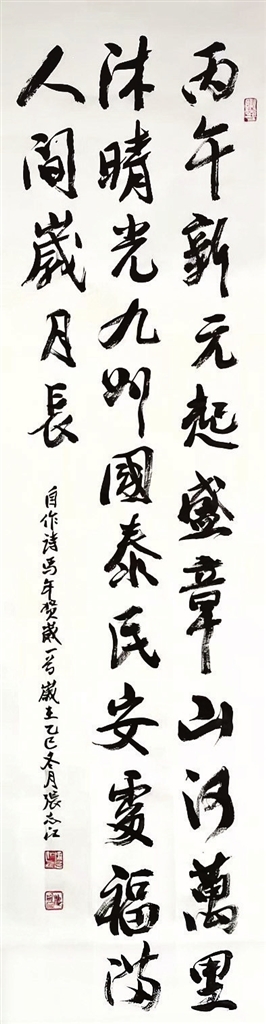 丙午新元起盛章山河萬里
沐晴光九州國泰民安處福滿
人間歲月長
自作詩馬年賀歲一首歲在乙巳冬月張志江